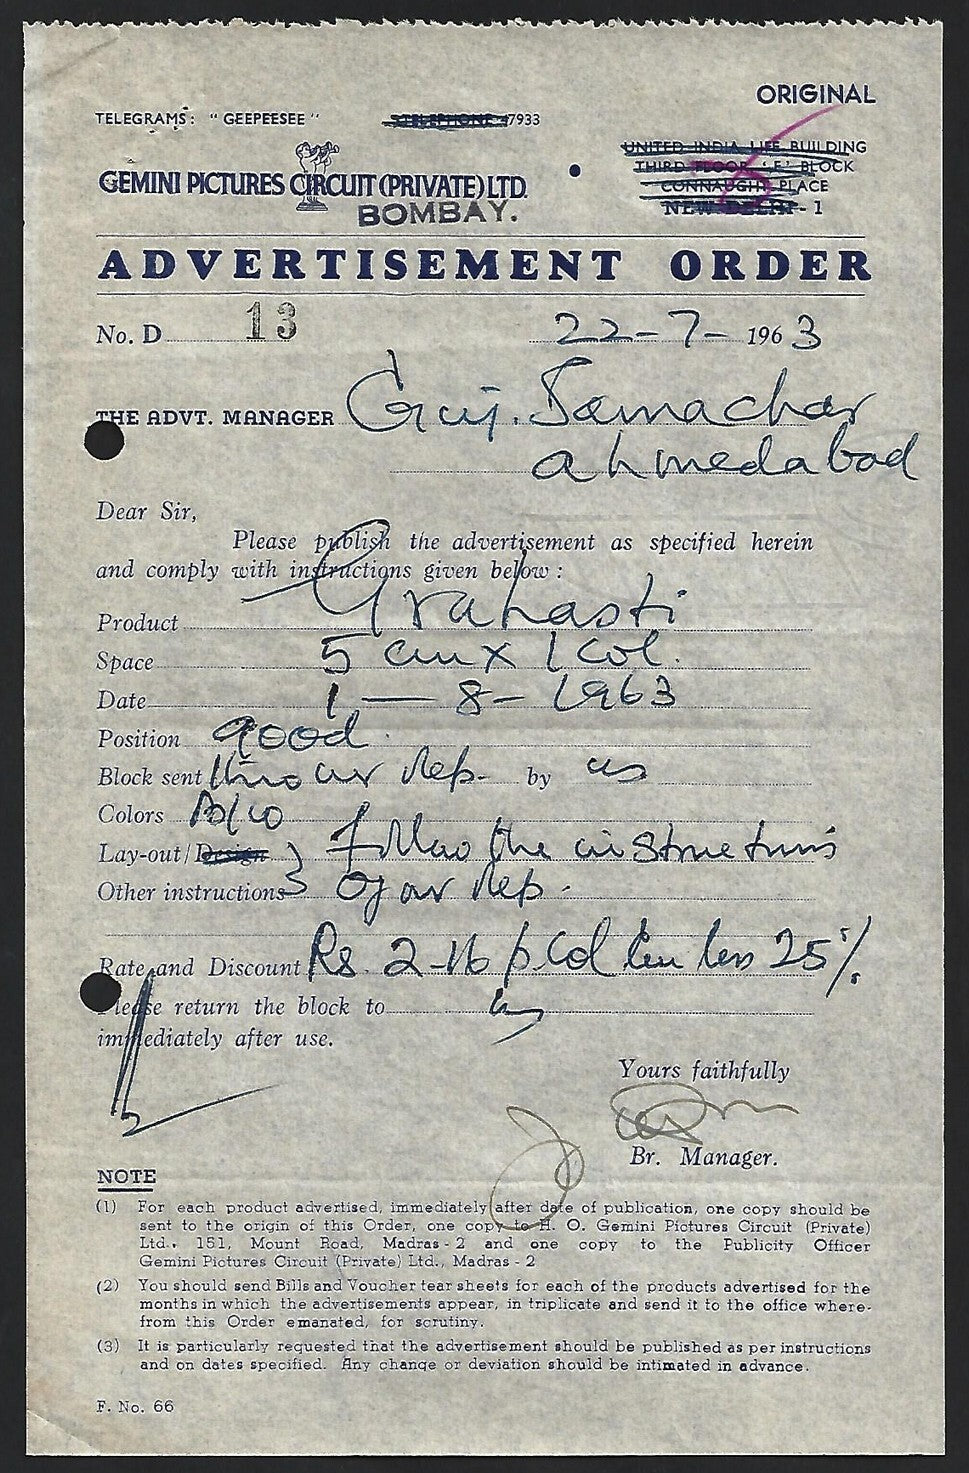 ORIGINAL
TELEGRAMS: "GEEPEESEE" TELEPHONE 47933
UNITED INDIA LIFE BUILDING
THIRD FLOOR 'F' BLOCK
CONNAUGHT PLACE
NEW DELHI - 1
GEMINI PICTURES CIRCUIT (PRIVATE) LTD.
BOMBAY.
ADVERTISEMENT ORDER
No. D 13 22-7-1963
THE ADVT. MANAGER Guj. Samachar
ahmedabad
Dear Sir,
Please publish the advertisement as specified herein
and comply with instructions given below:
Product Grahasti
Space 5 cm x 1 col.
Date 1 - 8 - 1963
Position good.
Block sent thro our Rep. by us
Colors B/W
Lay-out/Design } follow the instructions
Other instructions } of our Rep.
Rate and Discount Rs. 2-16 p. Col Cm less 25%
Please return the block to us
immediately after use.
Yours faithfully
Br. Manager.
NOTE
(1) For each product advertised, immediately after date of publication, one copy should be
sent to the origin of this Order, one copy to H. O. Gemini Pictures Circuit (Private)
Ltd., 151, Mount Road, Madras - 2 and one copy to the Publicity Officer
Gemini Pictures Circuit (Private) Ltd., Madras - 2
(2) You should send Bills and Voucher tear sheets for each of the products advertised for the
months in which the advertisements appear, in triplicate and send it to the office where-
from this Order emanated, for scrutiny.
(3) It is particularly requested that the advertisement should be published as per instructions
and on dates specified. Any change or deviation should be intimated in advance.
F. No. 66